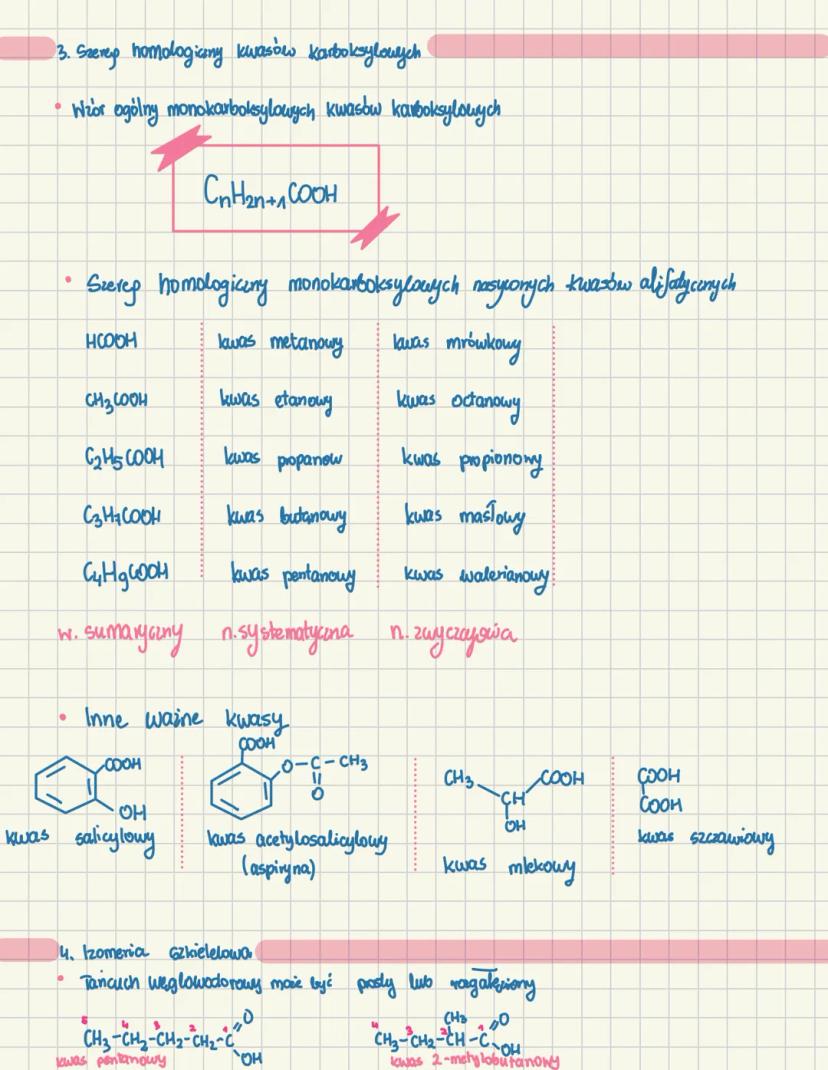 3. Szereg homologiczny kwasów karboksylowych
• Wzór ogólny monokarboksylowych kwasów karboksylowych
CnH2n+1COOH
• Szereg homologiczny monokarboksylowych nasyconych kwasów alifatycznych
HCOOH kwas metanowy kwas mrówkowy
CH3COOH kwas etanowy kwas octanowy
C2H5COOH kwas propanow kwas propionowy
C3H7COOH kwas butanowy kwas masłowy
C4H9COOH kwas pentanowy kwas walerianowy
w. sumaryczny n. systematyczna n. zwyczajowa
• Inne ważne kwasy
COOH
OH
kwas salicylowy
COOH
O-C-CH3
O
kwas acetylosalicylowy
(aspiryna)
CH3 CH COOH
OH
kwas mlekowy
COOH
COOH
kwas szczawiowy
4. Izomeria szkieletowa
• Łańcuch węglowodorowy może być prosty lub rozgałęziony
5 4 3 2 1
CH3-CH2-CH2-CH2-C O
OH
kwas pentanowy
CH3
4 3 2 1
CH3-CH2-CH-C O
OH
kwas 2-metylobutanowy